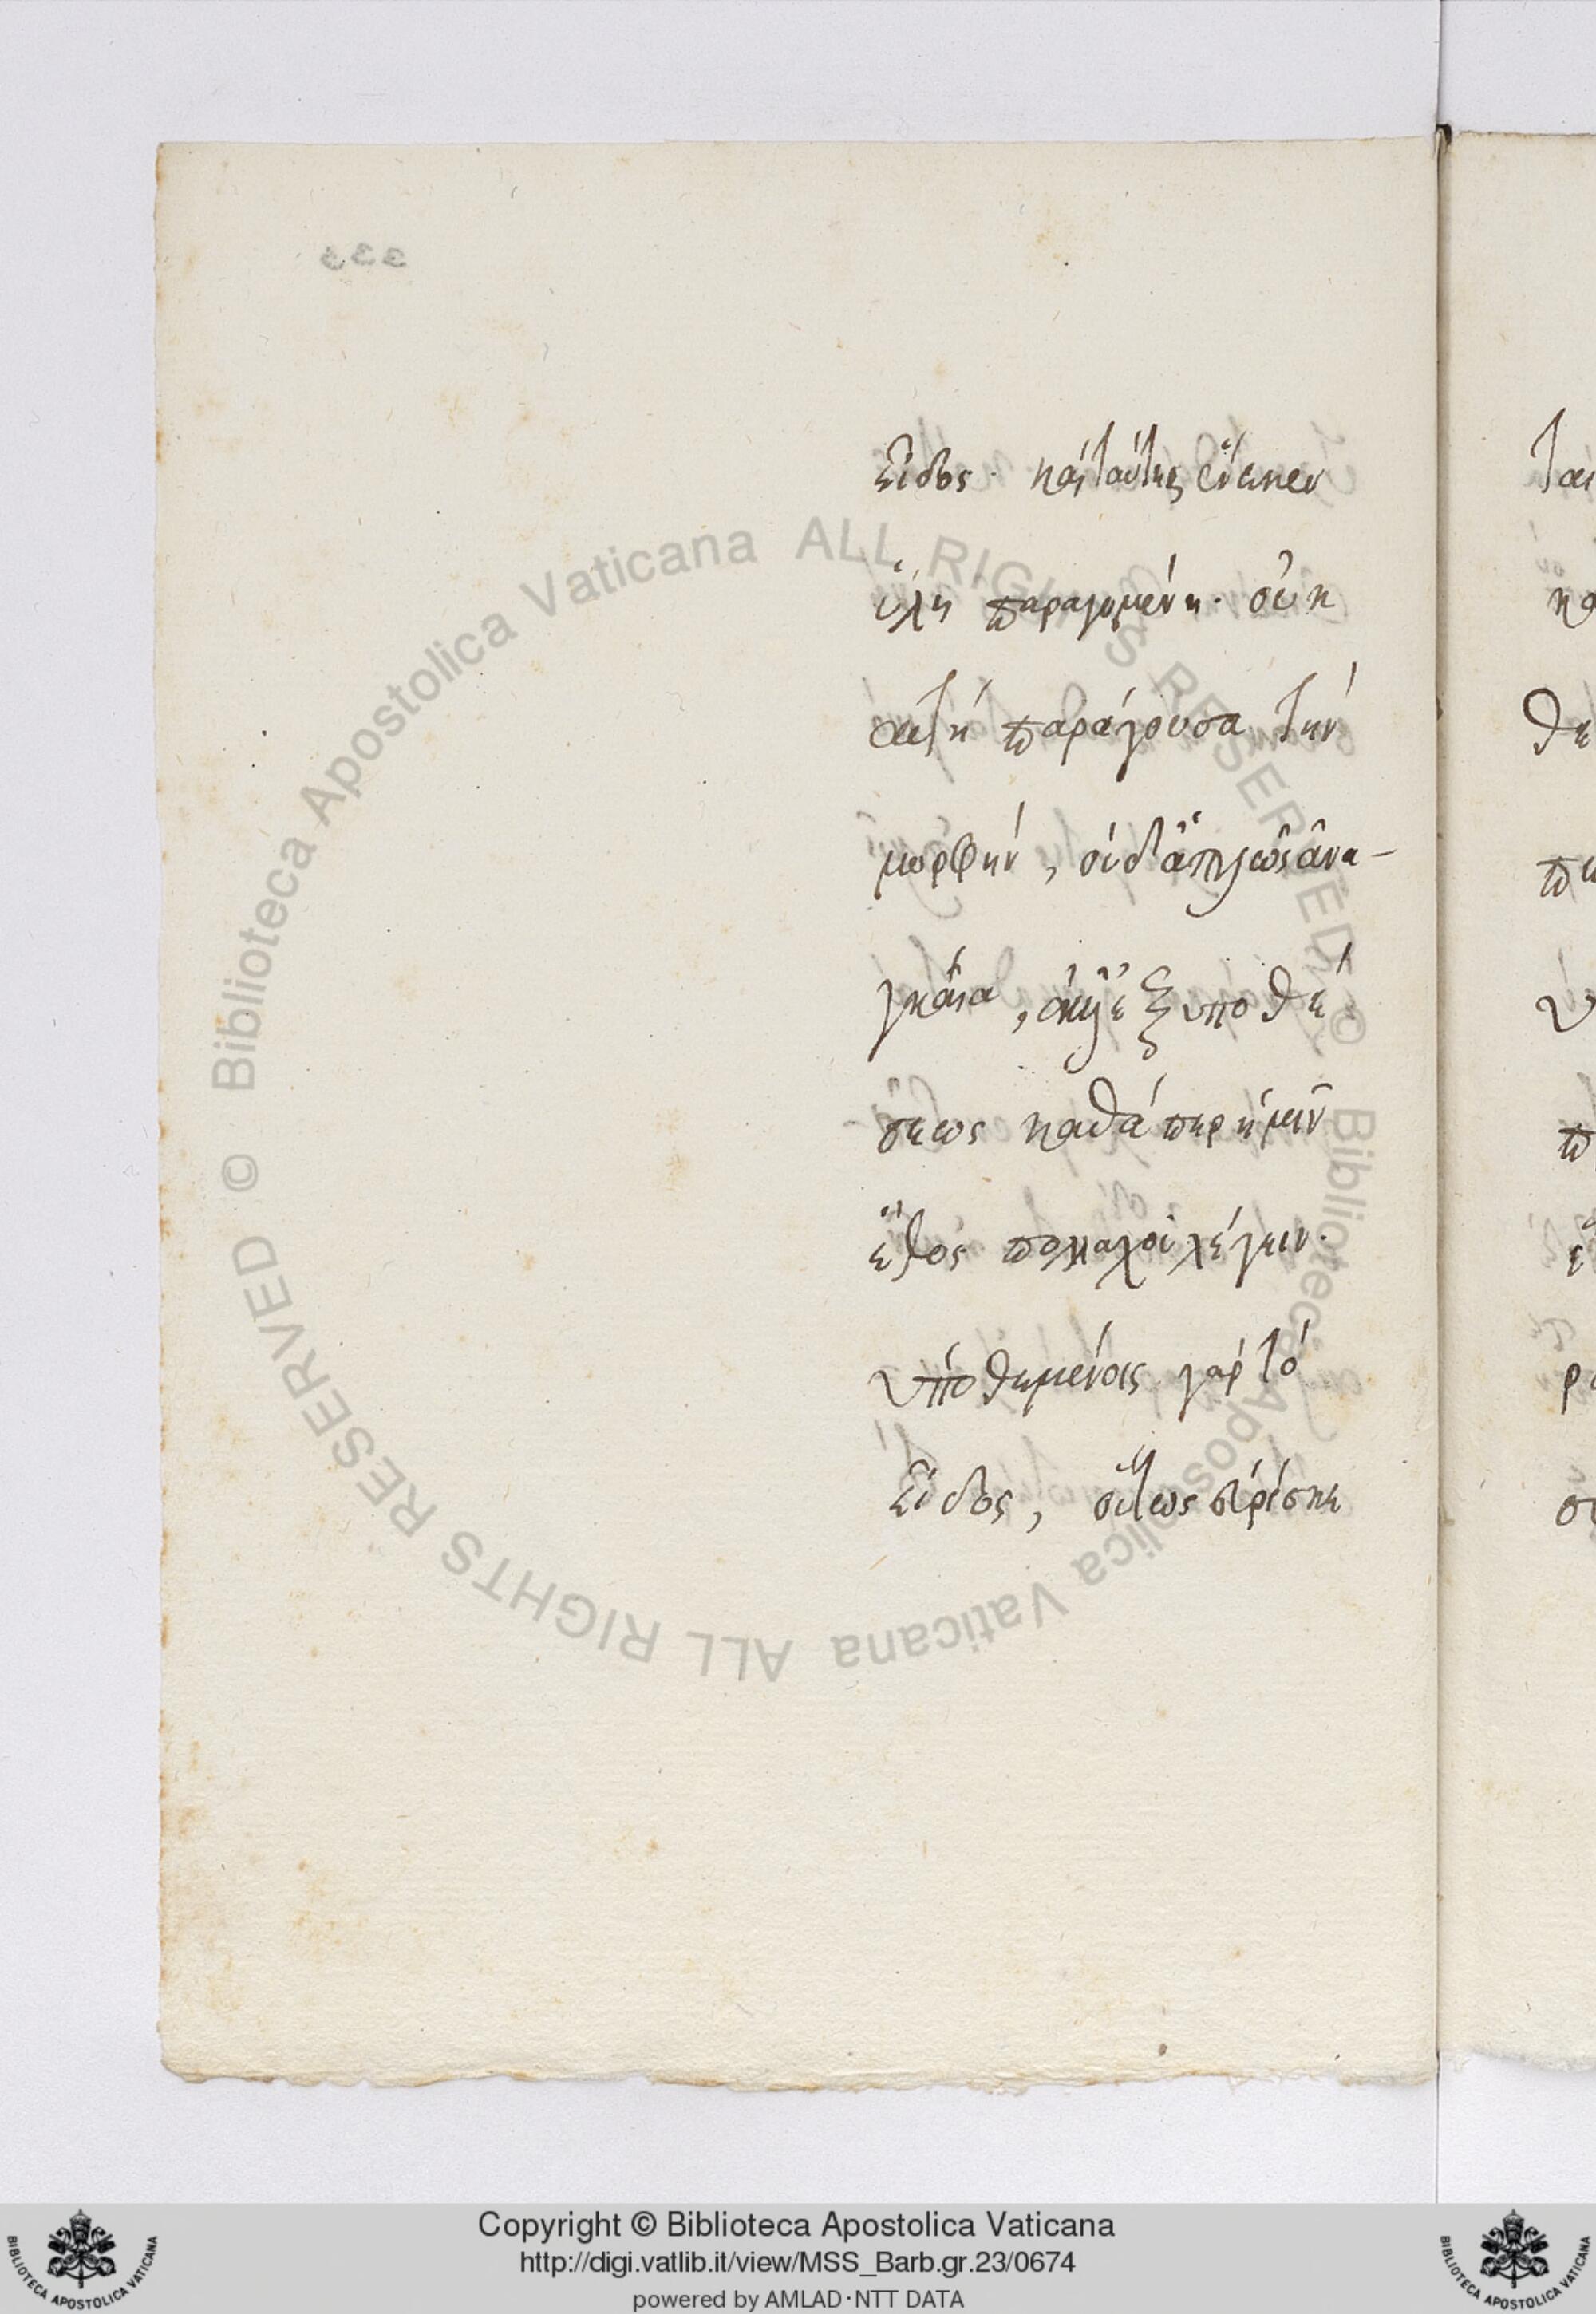 εἶδος· καὶ ταύτης ἕνεκεν
ὕλη παραγομένη· οὐκ
αὐτὴ παράγουσα τὴν
μορφὴν, οὐδ' ἁπλῶς ἀνα-
γκαία, ἀλλ' ἐξ ὑποθέ
σεως καθάπερ ἡμῖν
ἔθος πολλαχοῦ λέγειν·
ὑποθεμένοις γὰρ τὸ
εἶδος, οὕτως
Copyright © Biblioteca Apostolica Vaticana
http://digi.vatlib.it/view/MSS_Barb.gr.23/0674
powered by AMLAD·NTT DATA
© Biblioteca Apostolica Vaticana ALL RIGHTS RESERVED © Biblioteca Apostolica Vaticana ALL RIGHTS RESERVED
BIBLIOTECA APOSTOLICA VATICANA
BIBLIOTECA APOSTOLICA VATICANA